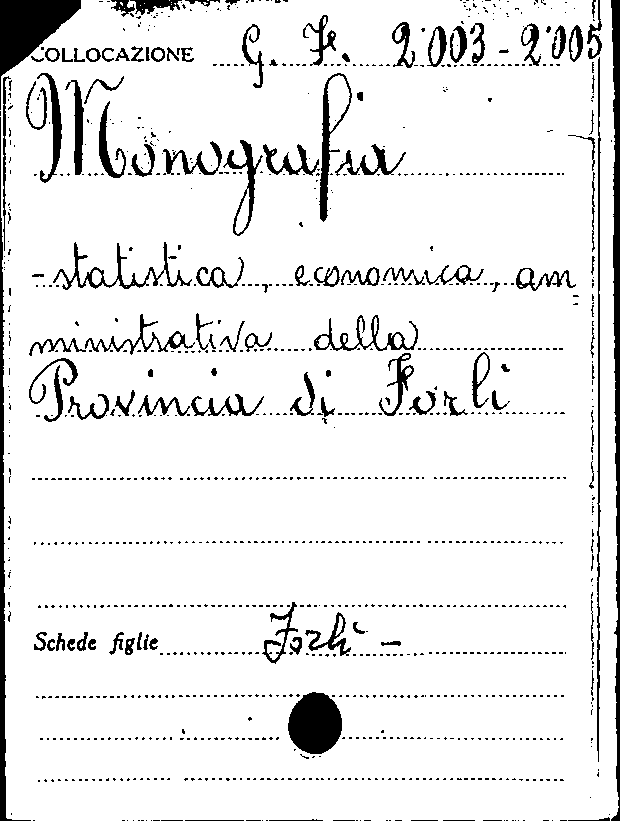 COLLOCAZIONE G. F. 2'003 - 2'005
Monografia
- statistica, economica, am=
ministrativa della
Provincia di Forlì
Schede figlie Forlì -